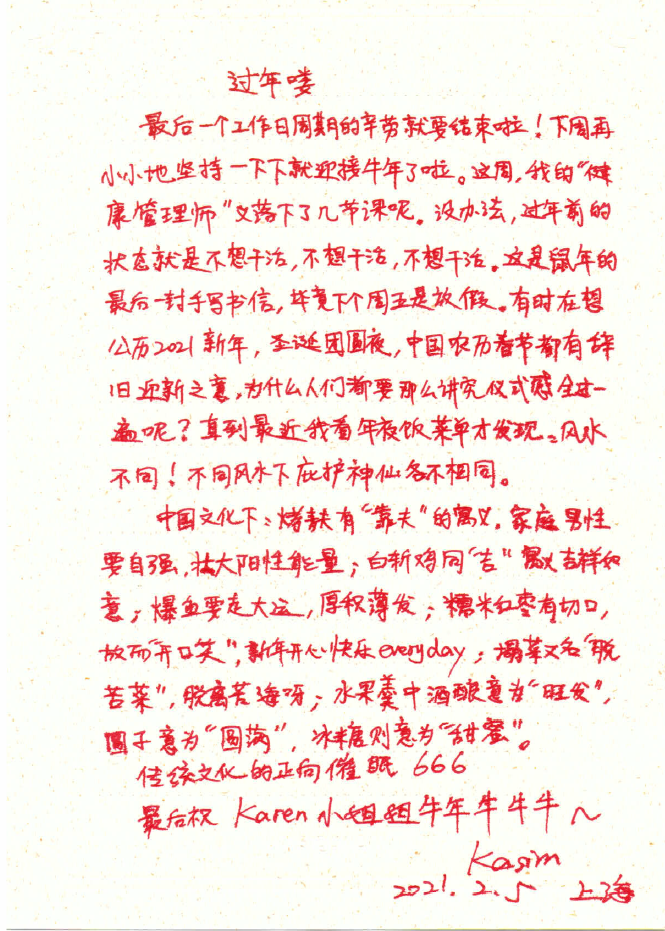 过年喽
最后一个工作日周期的辛劳就要结束啦！下周再
小小地坚持一下下就迎接牛年了啦。这周，我的“健
康管理师”又落下了几节课呢。没办法，过年前的
状态就是不想干活，不想干活，不想干活。这是鼠年的
最后一封手写书信，毕竟下个周五是放假。有时在想
公历2021新年，圣诞团圆夜，中国农历春节都有辞
旧迎新之意，为什么人们都要那么讲究仪式感全过一
遍呢？直到最近我看年夜饭菜单才发现：风水
不同！不同风水下庇护神仙各不相同。
中国文化下：烤麸有“靠夫”的寓义，家庭男性
要自强，壮大阳性能量；白斩鸡同“吉”寓义吉祥如
意；爆鱼要走大运，厚积薄发；糯米红枣有切口，
故而“开口笑”，新年开心快乐everyday；塌菜又名“脱
苦菜”，脱离苦海呀；水果羹中酒酿意为“旺发”，
圆子意为“圆满”，冰糖则意为“甜蜜”。
传统文化的正向催眠 666
最后祝 Karen小姐姐牛年牛牛牛～
Kasim
2021.2.5 上海